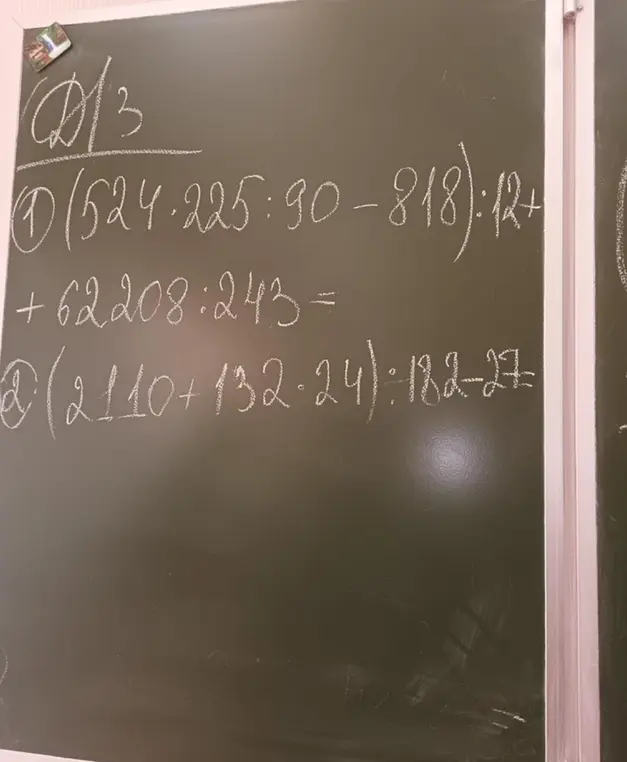 Д/З
① (524·225:90-818):12+
+62208:243=
② (2110+132·24):182-27=